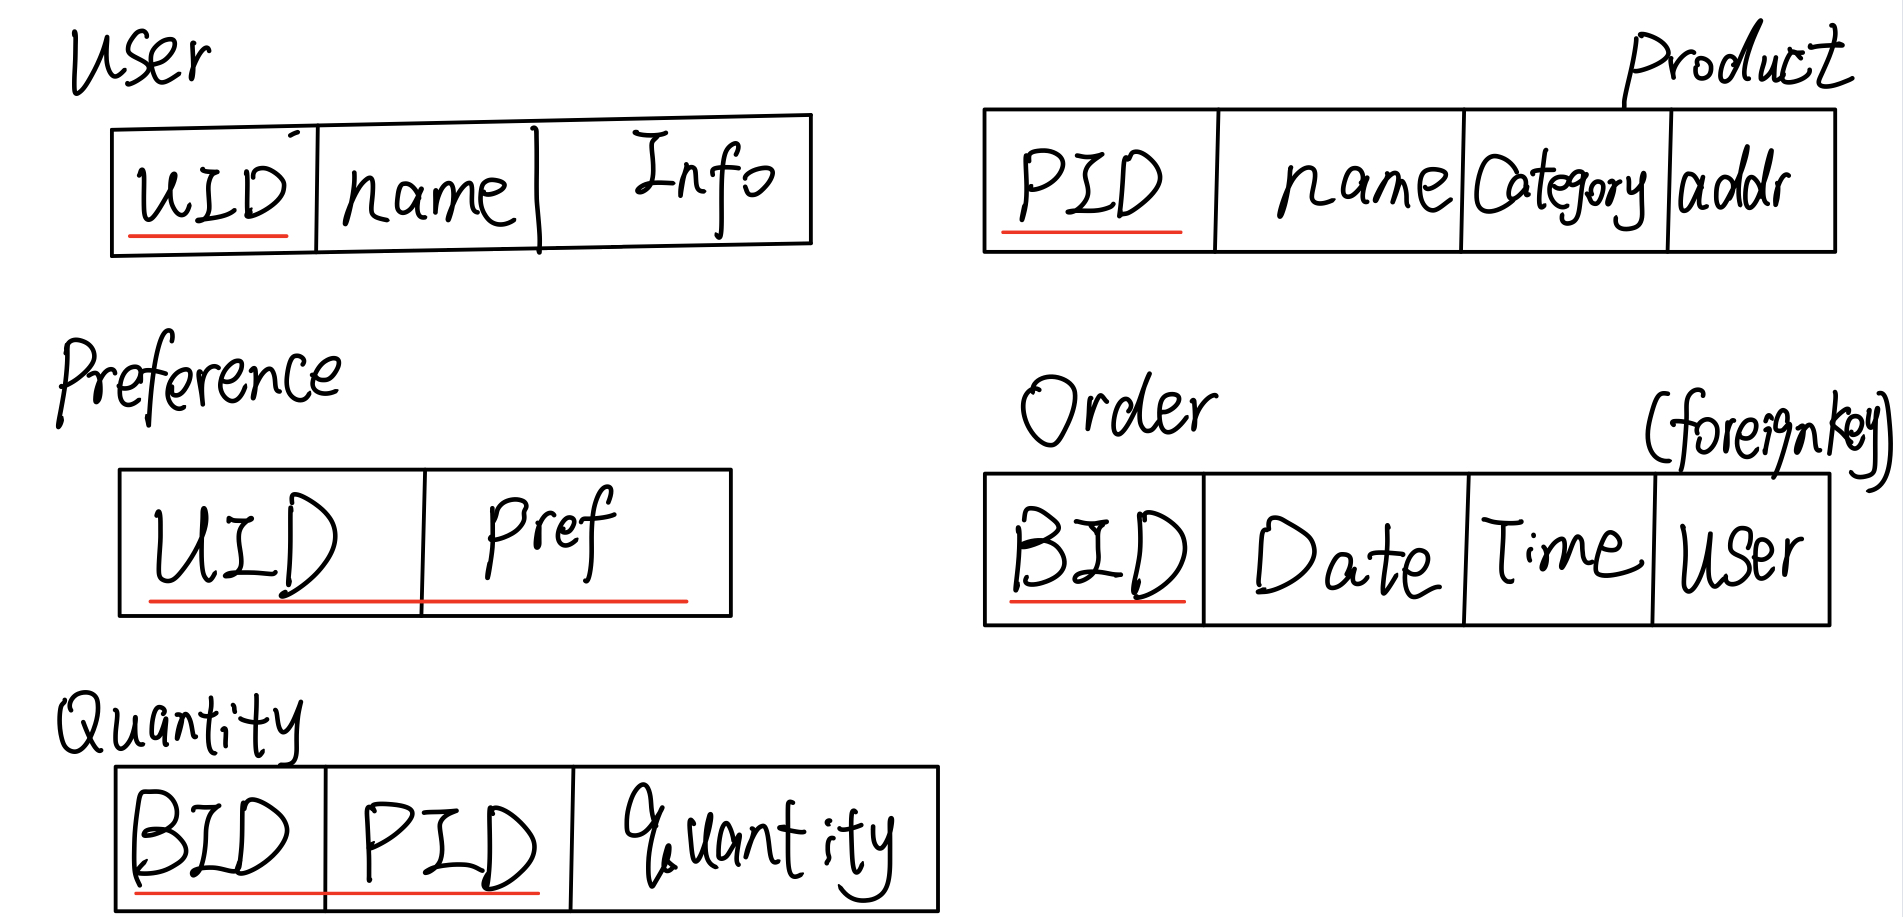 User
UID name Info
Product
PID name Category addr
Preference
UID Pref
Order
(foreign key)
BID Date Time User
Quantity
BID PID quantity